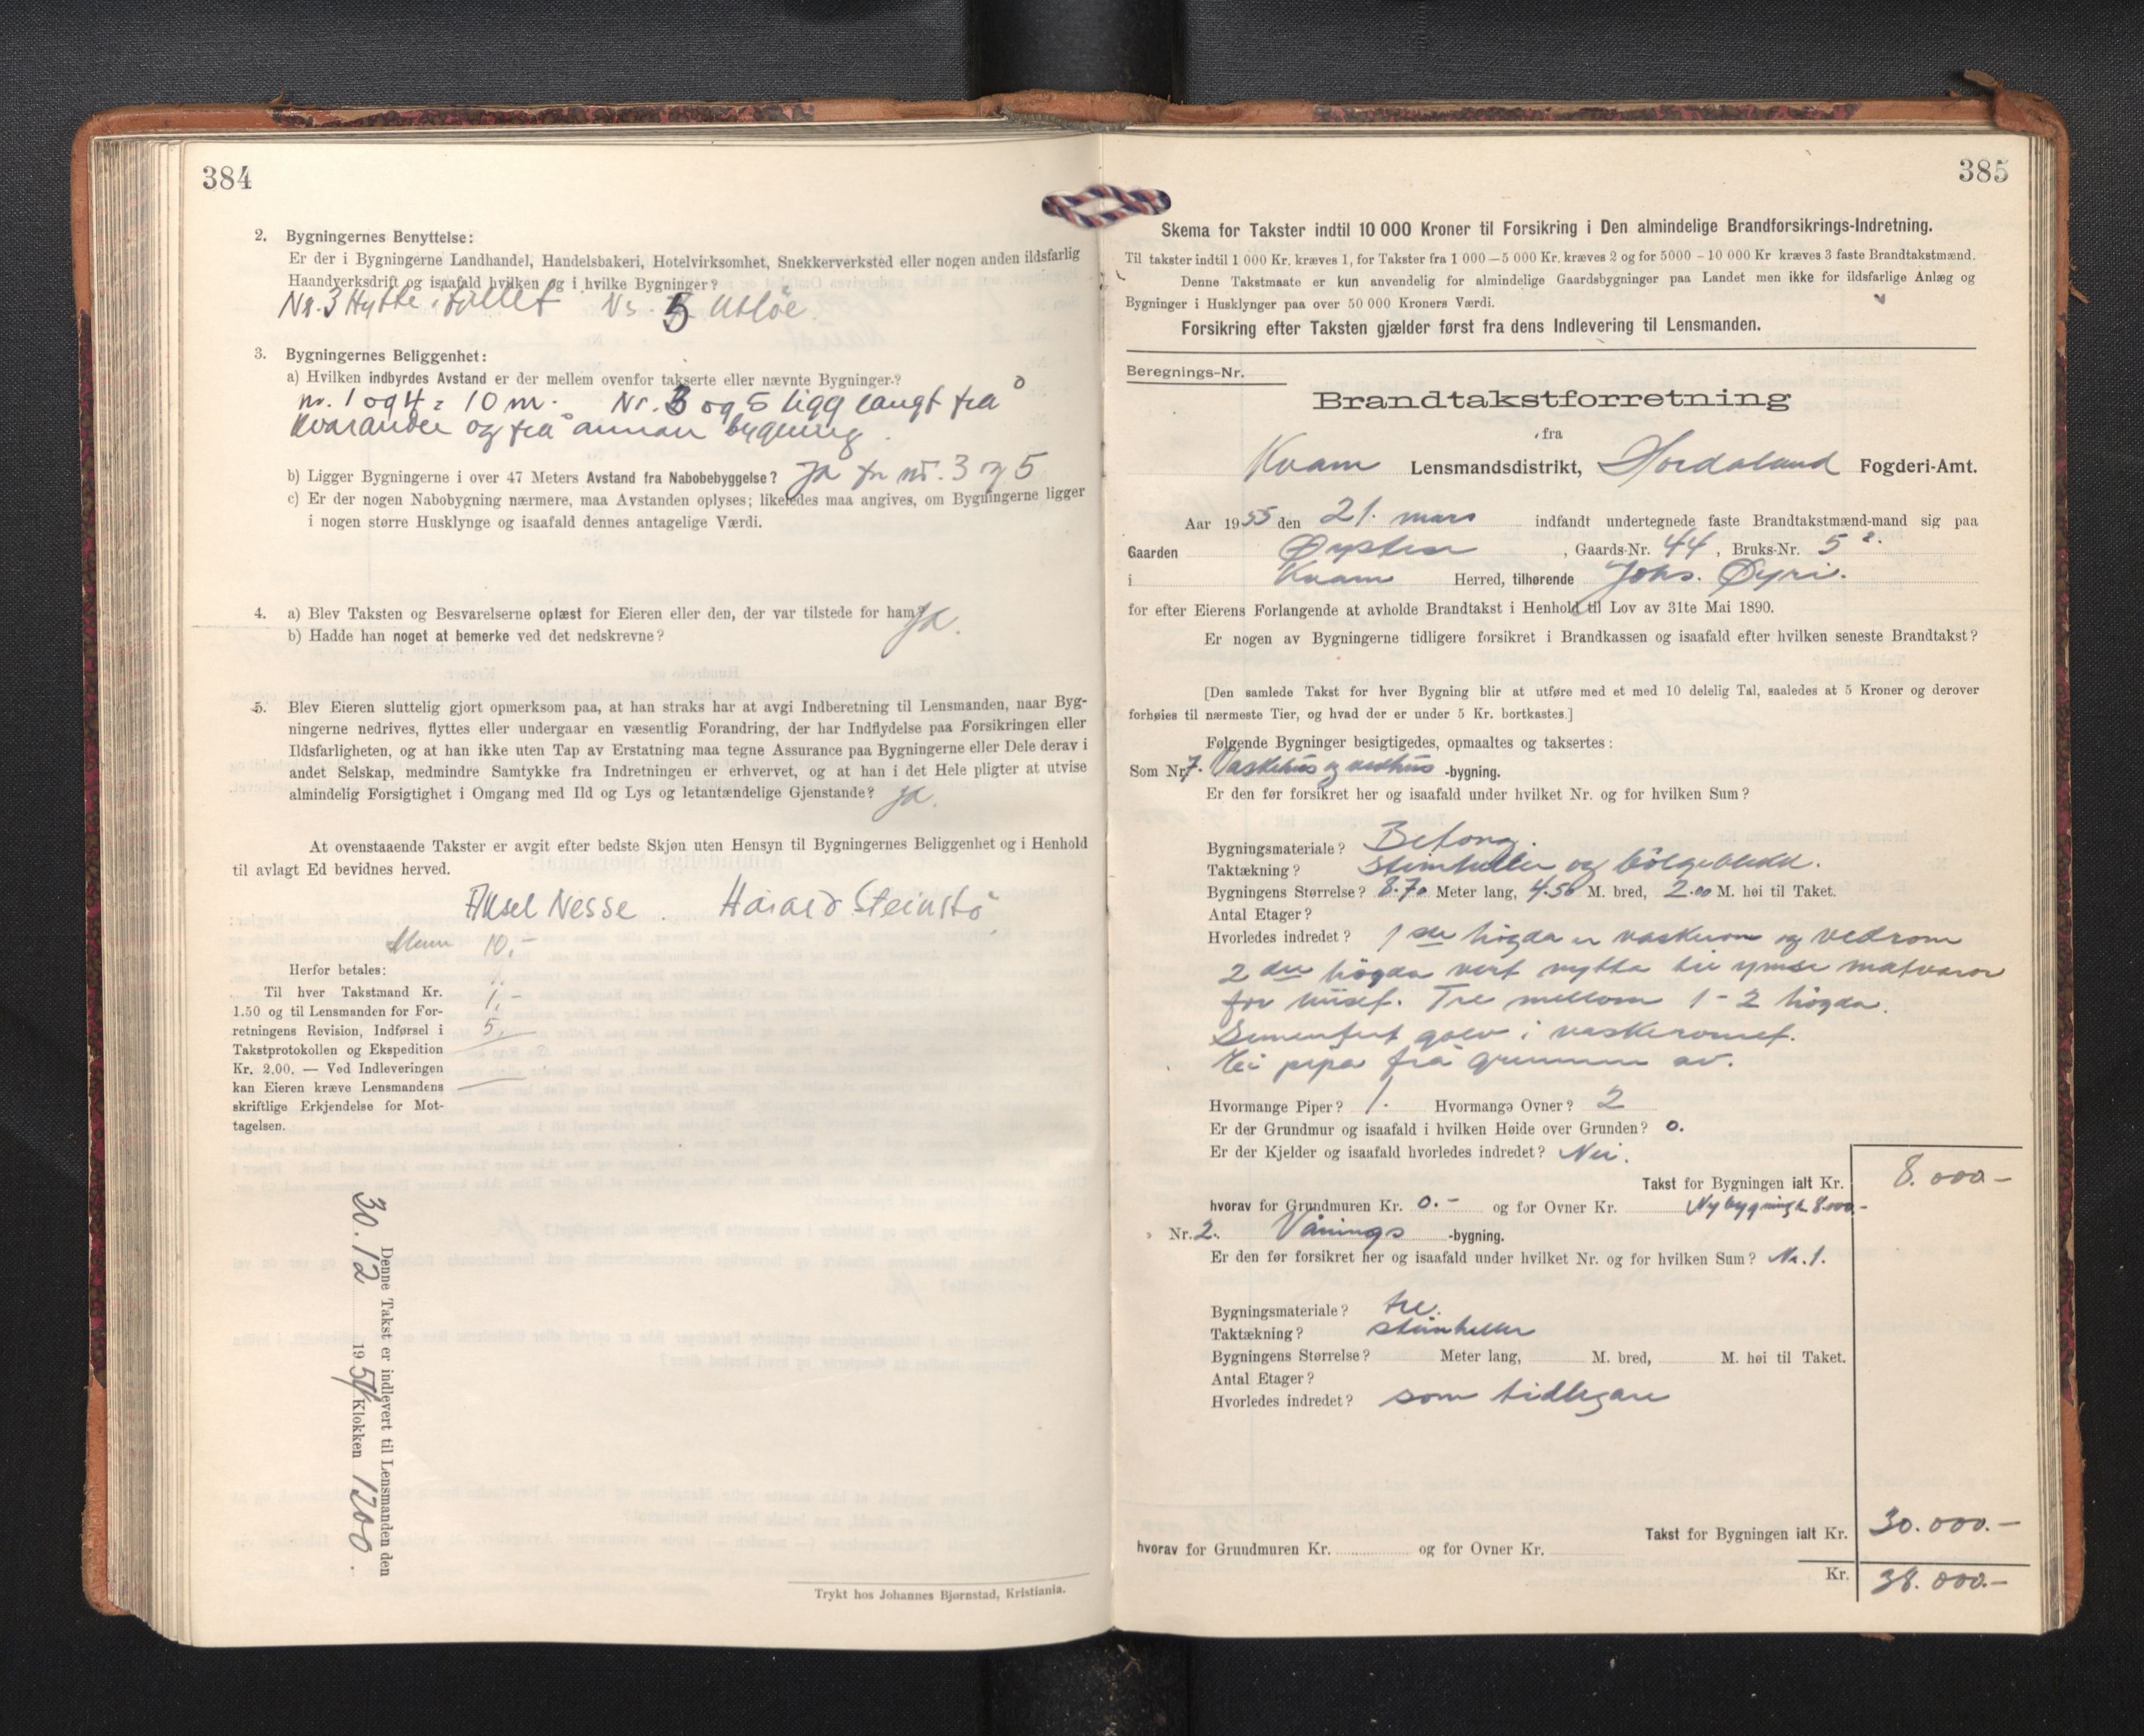 384
2. Bygningernes Benyttelse:
Er der i Bygningerne Landhandel, Handelsbakeri, Hotelvirksomhet, Snekkerverksted eller nogen anden ildsfarlig
Haandverksdrift og isaafald hvilken og i hvilke Bygninger?
Nr. 3 Hytte i fjellet Nr. 5 Utløe.
3. Bygningernes Beliggenhet:
a) Hvilken indbyrdes Avstand er der mellem ovenfor takserte eller nævnte Bygninger?
nr. 1 og 4 = 10 m. Nr. 3 og 5 ligg langt frå
kvarandre og frå annan bygning.
b) Ligger Bygningerne i over 47 Meters Avstand fra Nabobebyggelse? Ja for nr. 3 og 5
c) Er der nogen Nabobygning nærmere, maa Avstanden oplyses; likeledes maa angives, om Bygningerne ligger
i nogen større Husklynge og isaafald dennes antagelige Værdi.
4. a) Blev Taksten og Besvarelserne oplæst for Eieren eller den, der var tilstede for ham? Ja.
b) Hadde han noget at bemerke ved det nedskrevne?
5. Blev Eieren sluttelig gjort opmerksom paa, at han straks har at avgi Indberetning til Lensmanden, naar Byg-
ningerne nedrives, flyttes eller undergaar en væsentlig Forandring, der har Indflydelse paa Forsikringen eller
Ildsfarligheten, og at han ikke uten Tap av Erstatning maa tegne Assurance paa Bygningerne eller Dele derav i
andet Selskap, medmindre Samtykke fra Indretningen er erhvervet, og at han i det Hele pligter at utvise
almindelig Forsigtighet i Omgang med Ild og Lys og letantændelige Gjenstande? Ja.
At ovenstaaende Takster er avgit efter bedste Skjøn uten Hensyn til Bygningernes Beliggenhet og i Henhold
til avlagt Ed bevidnes herved.
Aksel Nesse. Harald Steinstø
10,-
Herfor betales:
Til hver Takstmand Kr.
1.50 og til Lensmanden for For-
retningens Revision, Indførsel i
Takstprotokollen og Ekspedition
Kr. 2.00. — Ved Indleveringen
kan Eieren kræve Lensmandens
skriftlige Erkjendelse for Mot-
tagelsen.
1,-
5,-
Denne Takst er indlevert til Lensmanden den
30. 12 1954 Klokken 1200.
Trykt hos Johannes Bjørnstad, Kristiania.
385
Skema for Takster indtil 10 000 Kroner til Forsikring i Den almindelige Brandforsikrings-Indretning.
Til takster indtil 1 000 Kr. kræves 1, for Takster fra 1 000 — 5 000 Kr. kræves 2 og for 5000 – 10 000 Kr kræves 3 faste Brandtakstmænd.
Denne Takstmaate er kun anvendelig for almindelige Gaardsbygninger paa Landet men ikke for ildsfarlige Anlæg og
Bygninger i Husklynger paa over 50 000 Kroners Værdi.
Forsikring efter Taksten gjælder først fra dens Indlevering til Lensmanden.
Beregnings-Nr.
Brandtakstforretning
fra
Kvam Lensmandsdistrikt, Hordaland Fogderi-Amt.
Aar 1955 den 21. mars indfandt undertegnede faste Brandtakstmænd-mand sig paa
Gaarden Øystese, Gaards-Nr. 44, Bruks-Nr. 5
i Kvam Herred, tilhørende Johs. Øyri.
for efter Eierens Forlangende at avholde Brandtakst i Henhold til Lov av 31te Mai 1890.
Er nogen av Bygningerne tidligere forsikret i Brandkassen og isaafald efter hvilken seneste Brandtakst?
[Den samlede Takst for hver Bygning blir at utføre med et med 10 delelig Tal, saaledes at 5 Kroner og derover
forhøies til nærmeste Tier, og hvad der er under 5 Kr. bortkastes.]
Følgende Bygninger besigtigedes, opmaaltes og taksertes:
Som Nr. 7. Vaskehus og vedhus -bygning.
Er den før forsikret her og isaafald under hvilket Nr. og for hvilken Sum?
Bygningsmateriale? Betong.
Taktækning? Steinheller og bölgeblekk.
Bygningens Størrelse? 8.70 Meter lang, 4.50 M. bred, 2.00 M. høi til Taket.
Antal Etager?
Hvorledes indredet? 1ste högda er vaskerom og vedrom
2dre högda vert nytta til ymse matvaror
for huset. Tre mellom 1 - 2 högda.
Sementert golv i vaskeromet.
Ei pipa frå grunnen av.
Hvormange Piper? 1. Hvormange Ovner? 2
Er der Grundmur og isaafald i hvilken Høide over Grunden? 0.
Er der Kjelder og isaafald hvorledes indredet? Nei.
Takst for Bygningen ialt Kr. 8.000-
hvorav for Grundmuren Kr. 0.- og for Ovner Kr. Nybygning k. 8.000.-
Nr. 2. Vånings -bygning.
Er den før forsikret her og isaafald under hvilket Nr. og for hvilken Sum? Nr. 1.
Bygningsmateriale? tre.
Taktækning? steinheller
Bygningens Størrelse? Meter lang, M. bred, M. høi til Taket.
Antal Etager?
Hvorledes indredet? som tidlegare
Takst for Bygningen ialt Kr. 30.000.-
hvorav for Grundmuren Kr. og for Ovner Kr.
Kr. 38.000.-